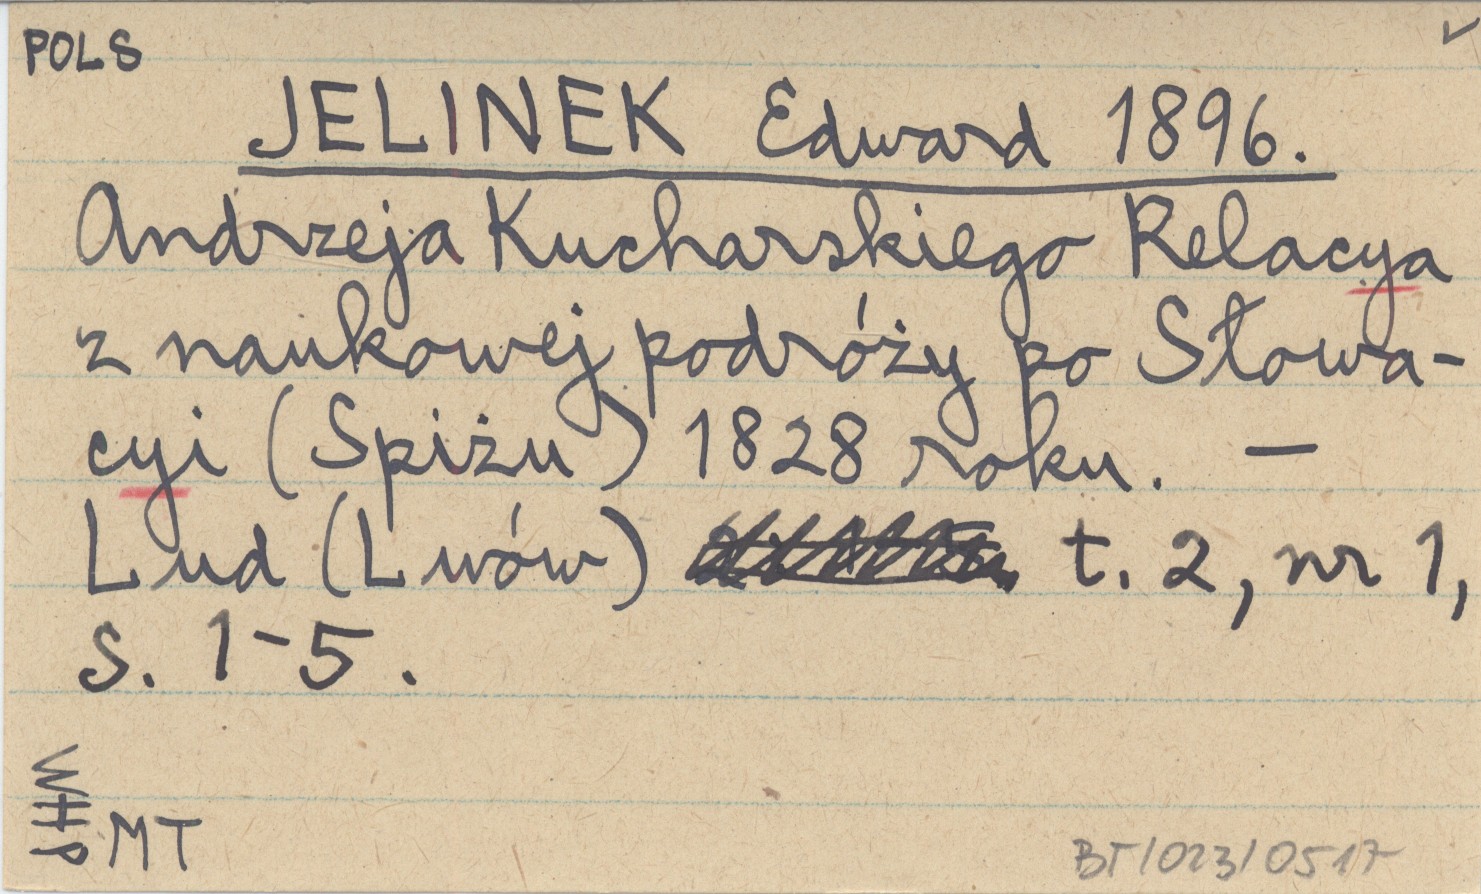 POLS
JELINEK Edward 1896.
Andrzeja Kucharskiego Relacya
z naukowej podróży po Słowa-
cyi (Spiżu) 1828 roku. —
Lud (Lwów) t. 2, nr 1,
s. 1-5.
WHP
MT
BT/023/0517